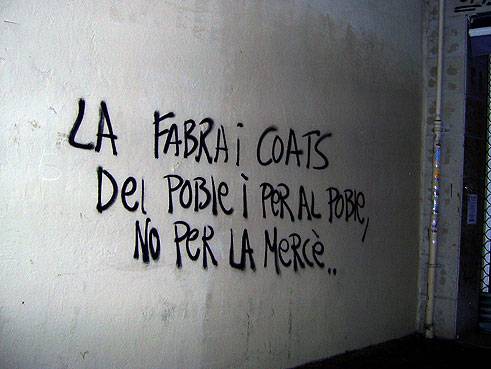 LA FABRA i COATS
Del POBle i PER AL POBle,
NO PeR LA MeRCè..